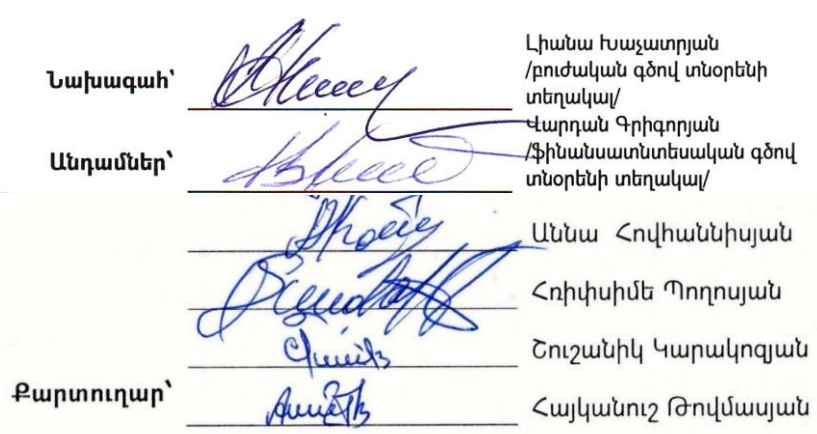 Լիանա Խաչատրյան
Նախագահ՝ /բուժական գծով տնօրենի
տեղակալ/
Վարդան Գրիգորյան
Անդամներ՝ /ֆինանսատնտեսական գծով
տնօրենի տեղակալ/
Աննա Հովհաննիսյան
Հռիփսիմե Պողոսյան
Շուշանիկ Կարակոզյան
Քարտուղար՝ Հայկանուշ Թովմասյան